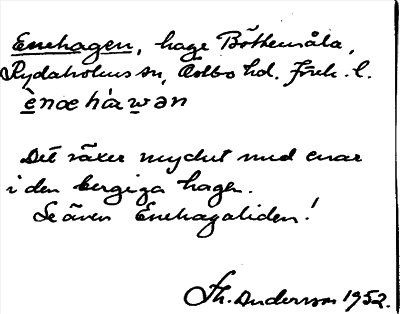 Enehagen, hage Böttemåla,
Rydaholms sn, Östbo hd. Jönk. l.
ènœhàwən
Det växer mycket med enar
i den bergiga hagen.
Se även Enehagaliden!
Th. Anderson 1952.